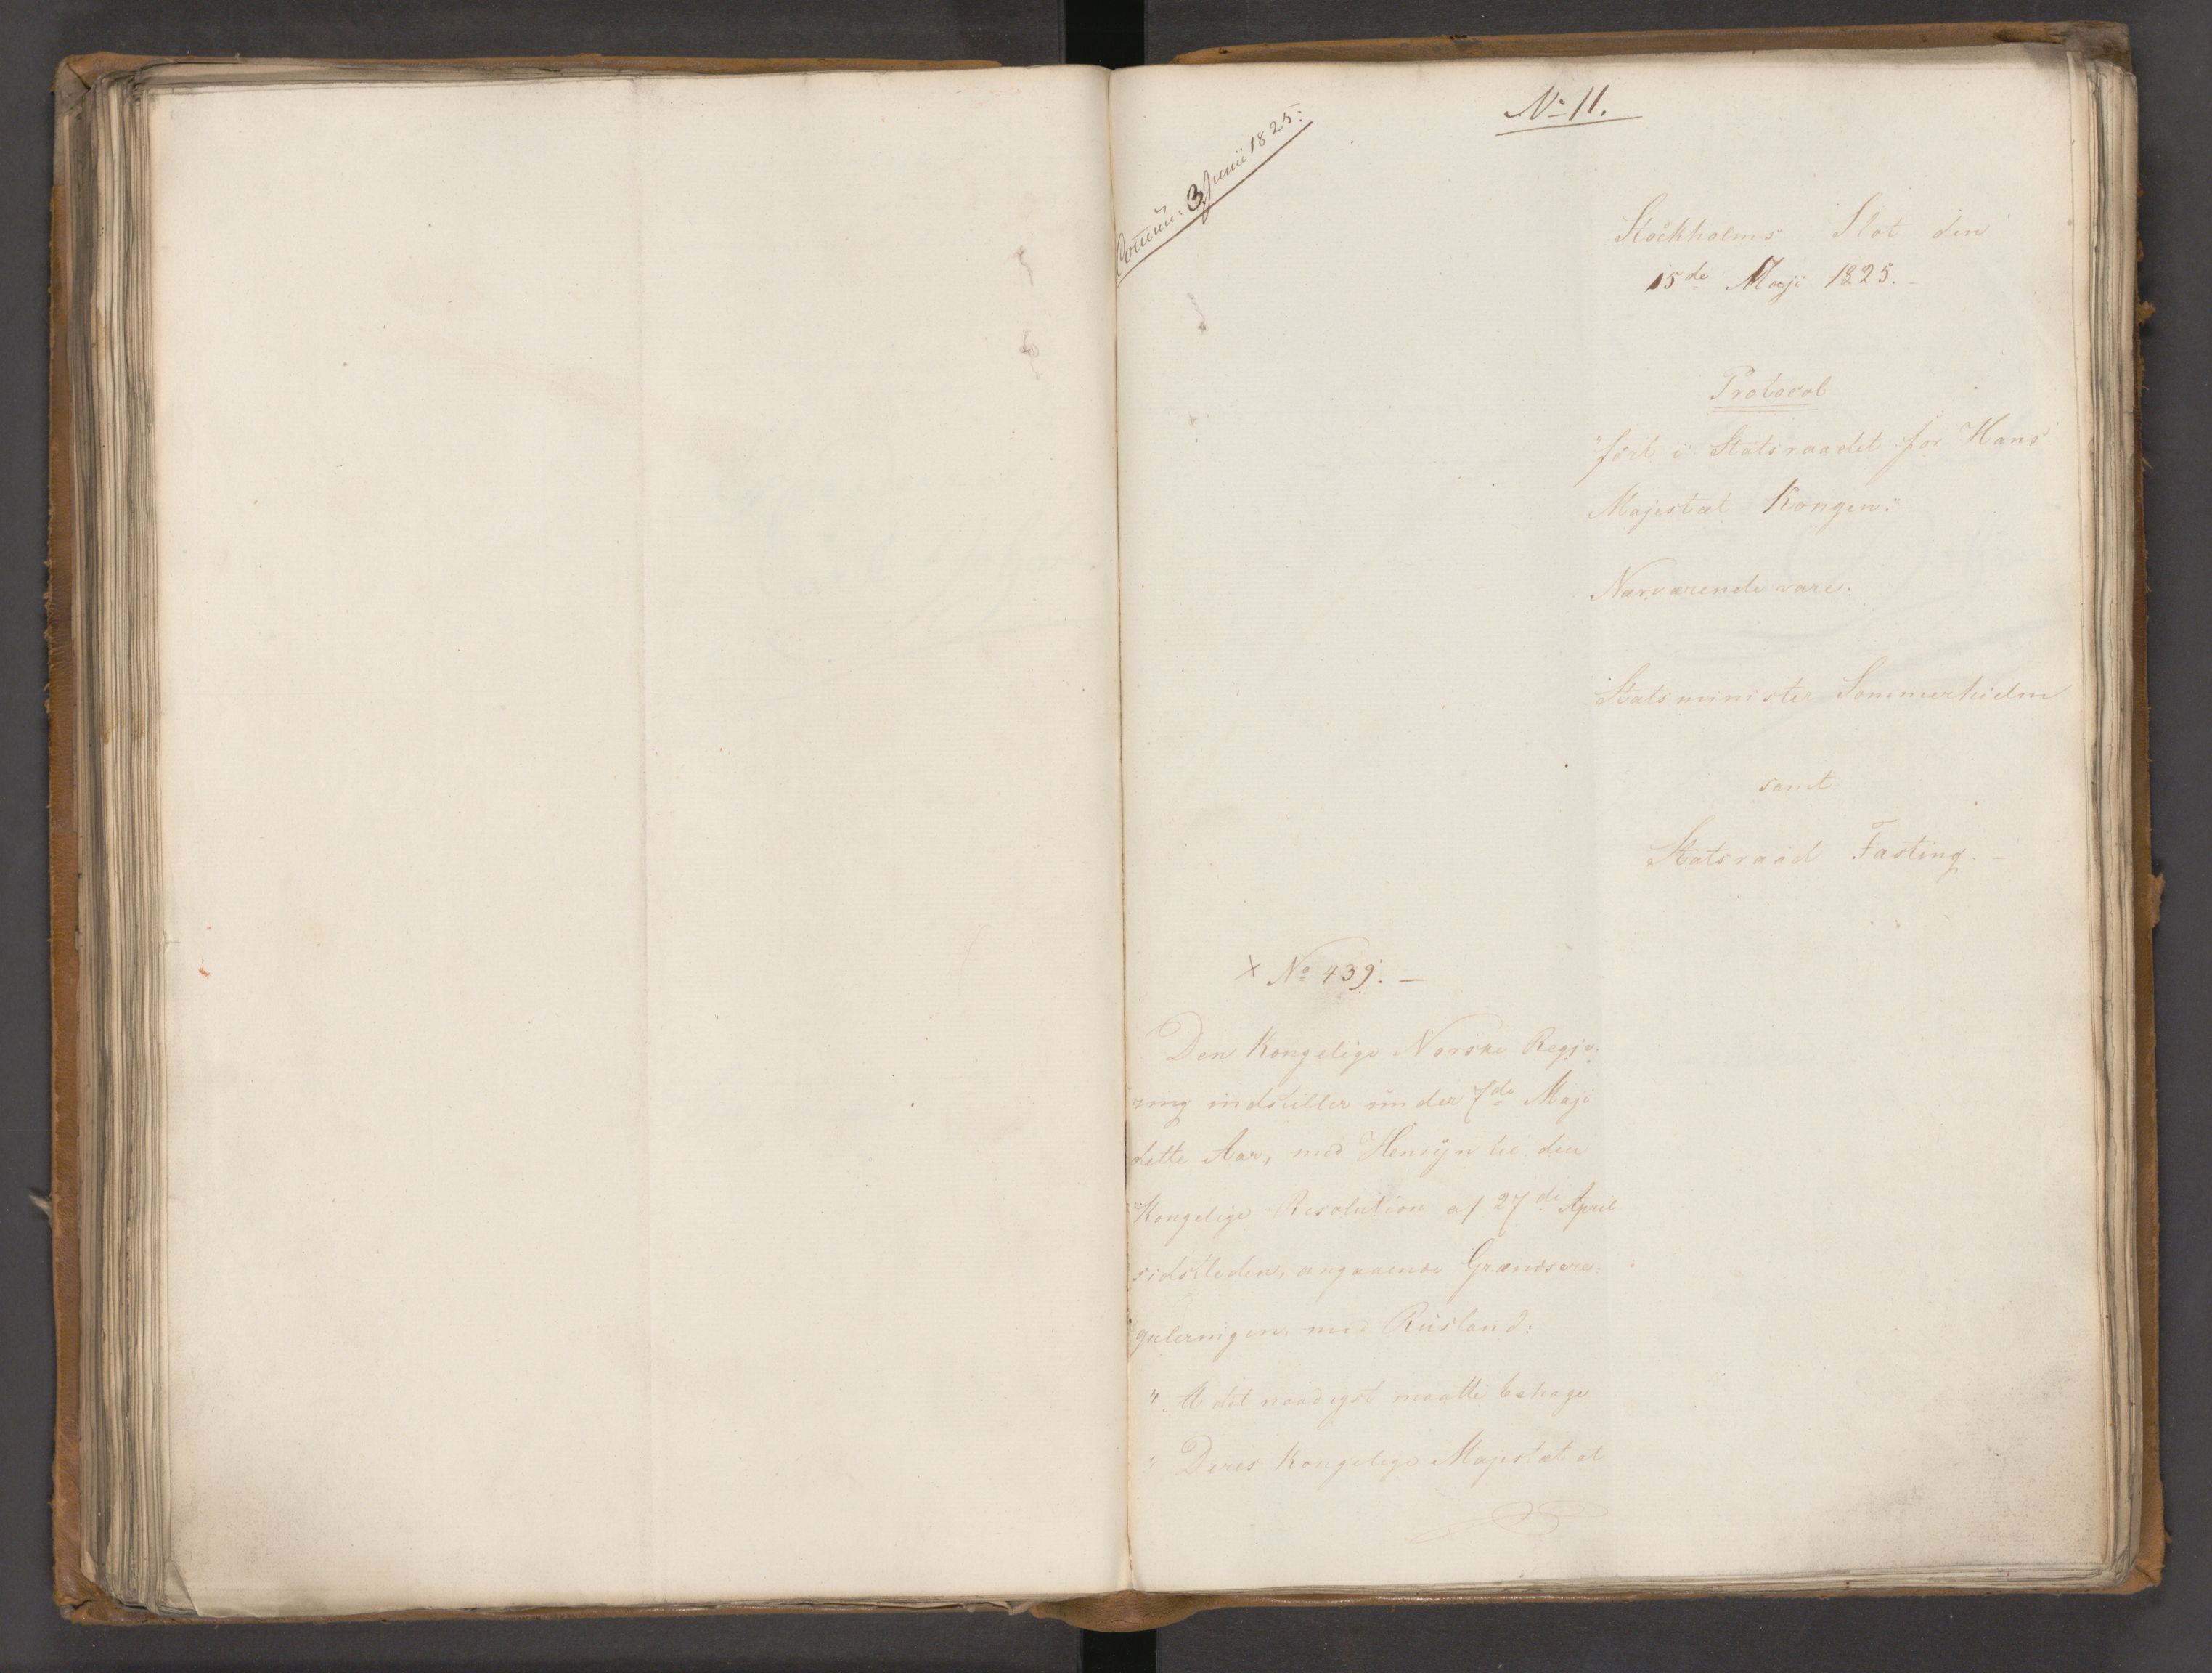 No 11.
Comm: 3 Junii 1825:
Stockholms Slot den
15de Maji 1825.-
Protocol
"fört i Statsraadet for Hans
Majestæt Kongen."
Nærværende vare:
Statsminister Sommerhielm
samt
Statsraad Fasting. -
x No 439. -
Den Kongelige Norske Regje-
ring indstiller under 7de Maji
dette Aar, med Hensyn til den
Kongelige Resolution af 27de April
sidstleden, angaaende Grændsere-
guleringen med Rusland:
". At det naadigst maatte behage
" Deres Kongelige Majestæt at